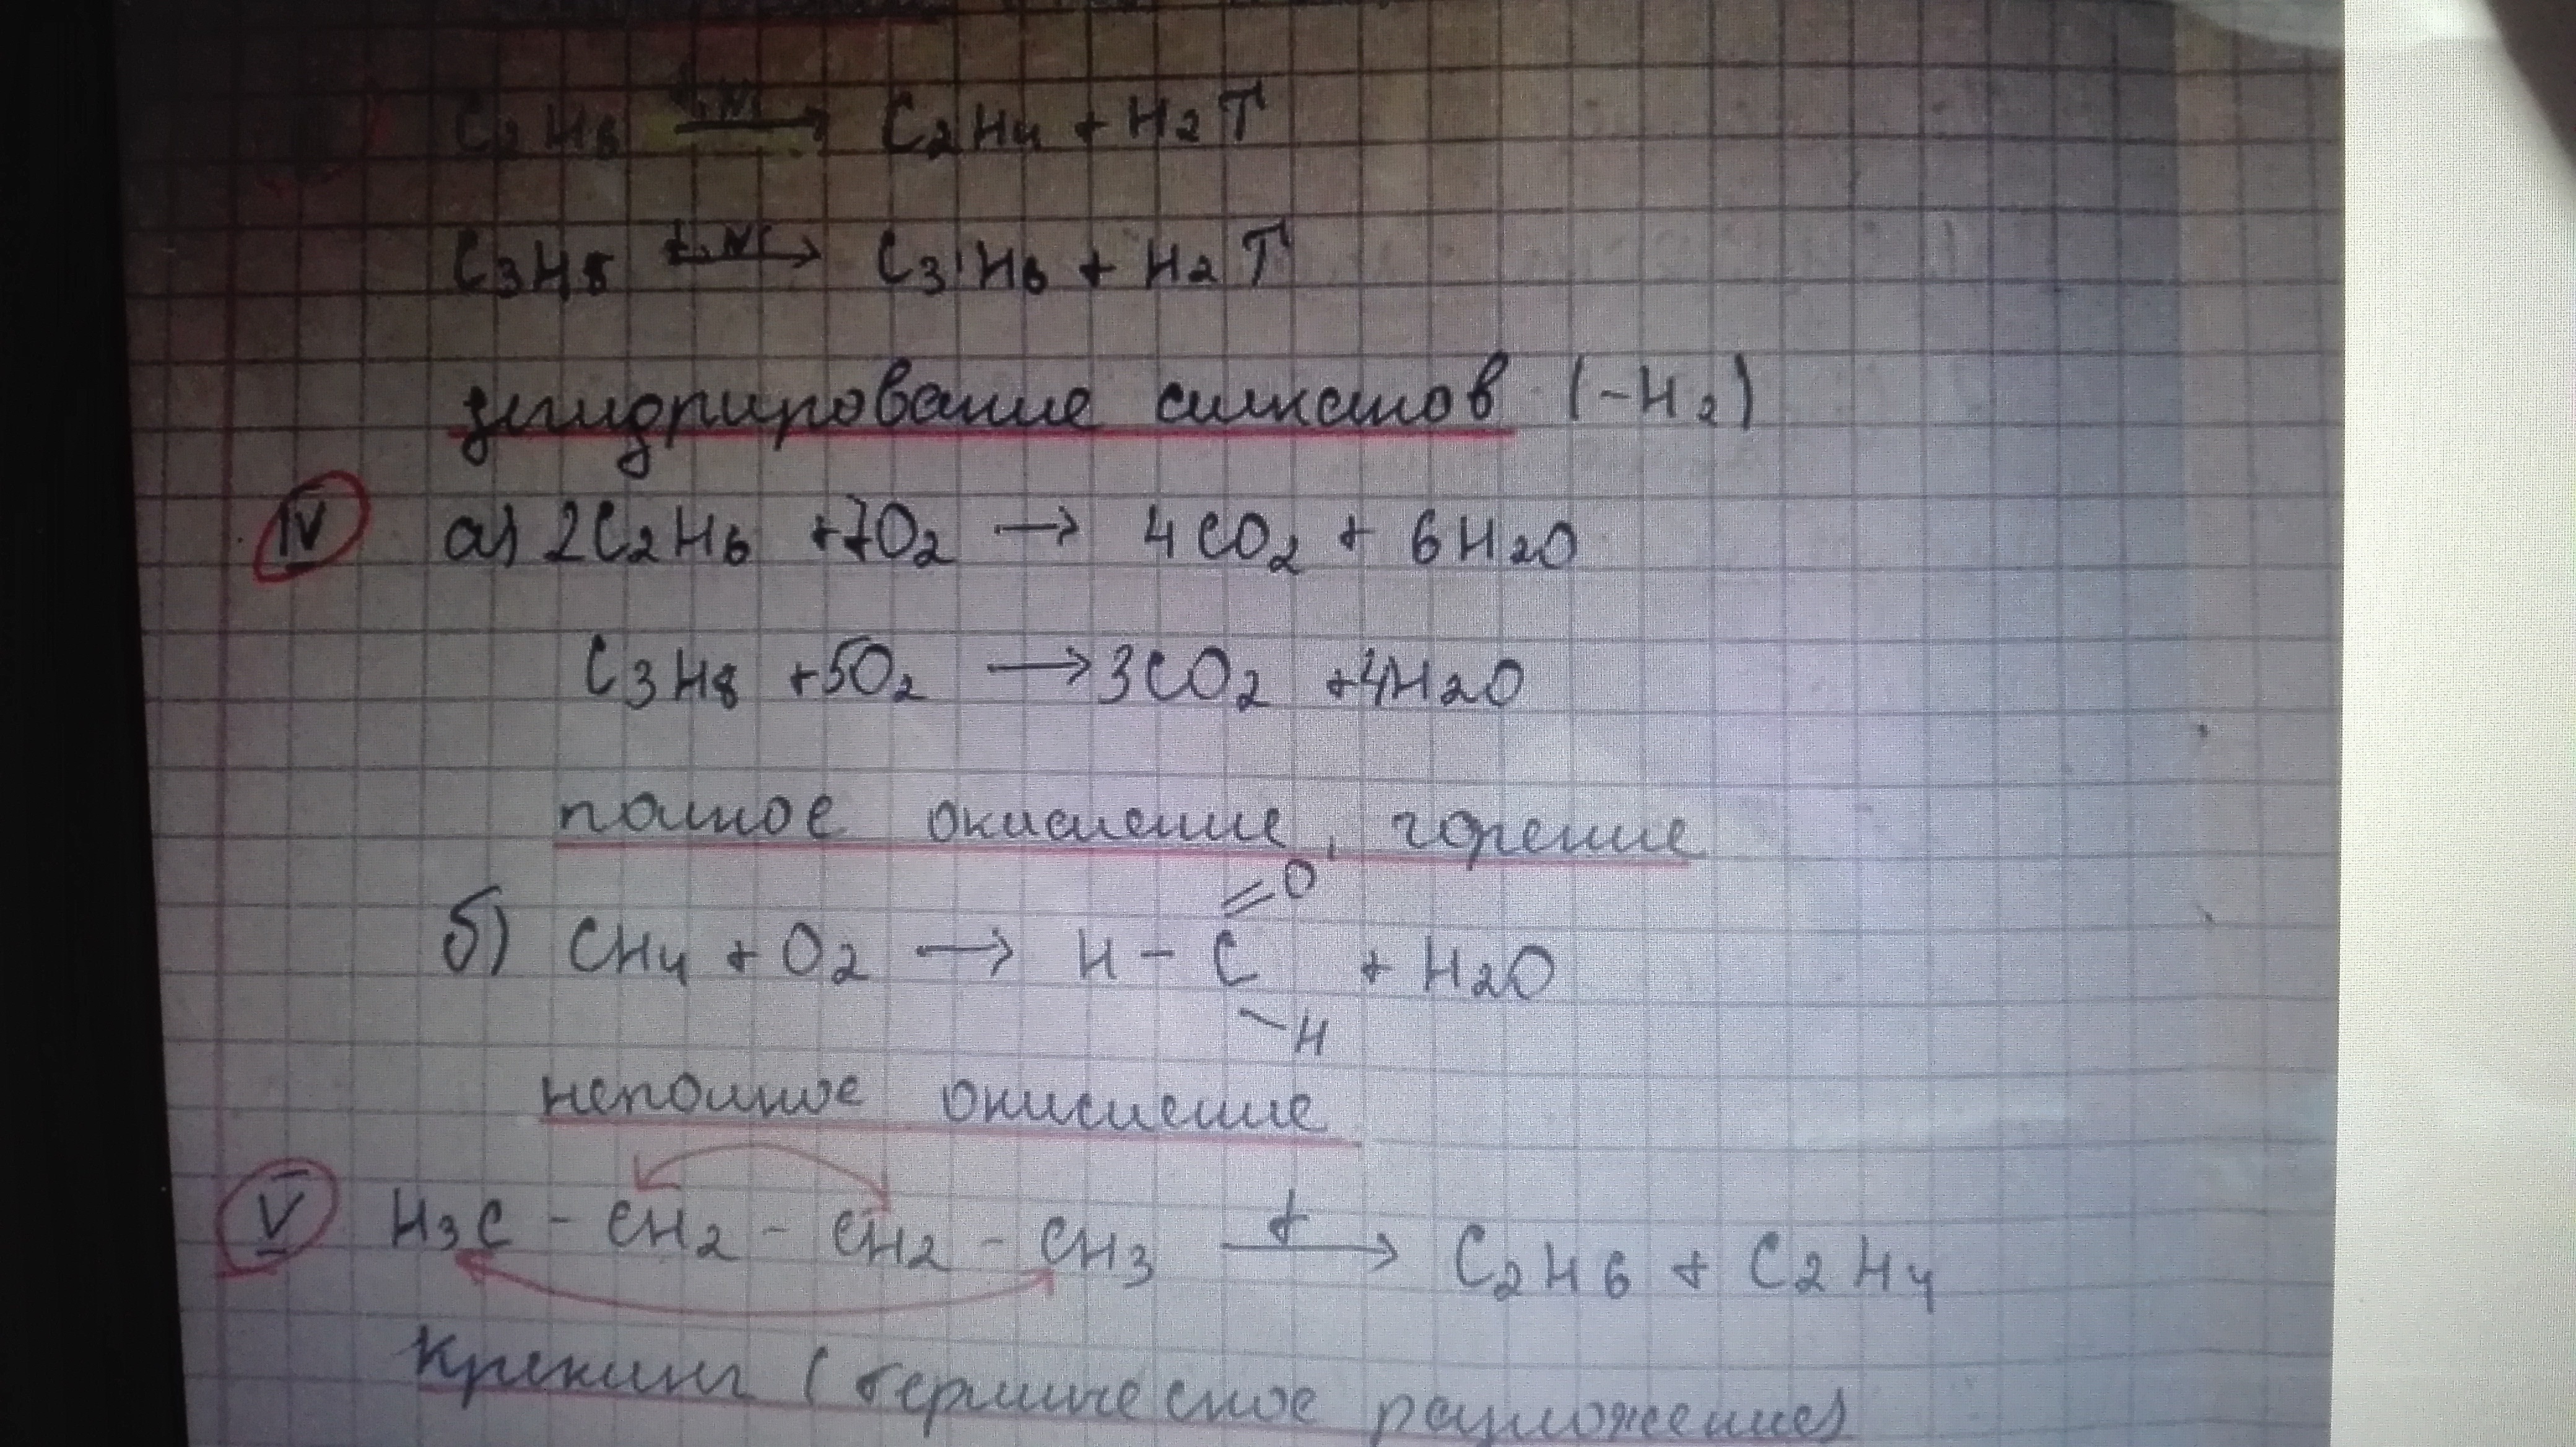 C2H6 t,Ni→ C2H4 + H2↑
C3H8 t,Ni→ C3H6 + H2↑
дегидрирование алканов (-H2)
IV а) 2C2H6 +7O2 → 4CO2 + 6H2O
C3H8 +5O2 → 3CO2 +4H2O
полное окисление, горение
=O
б) CH4 + O2 → H - C + H2O
-H
неполное окисление
V H3C - CH2 - CH2 - CH3 t→ C2H6 + C2H4
Крекинг (термическое разложение)